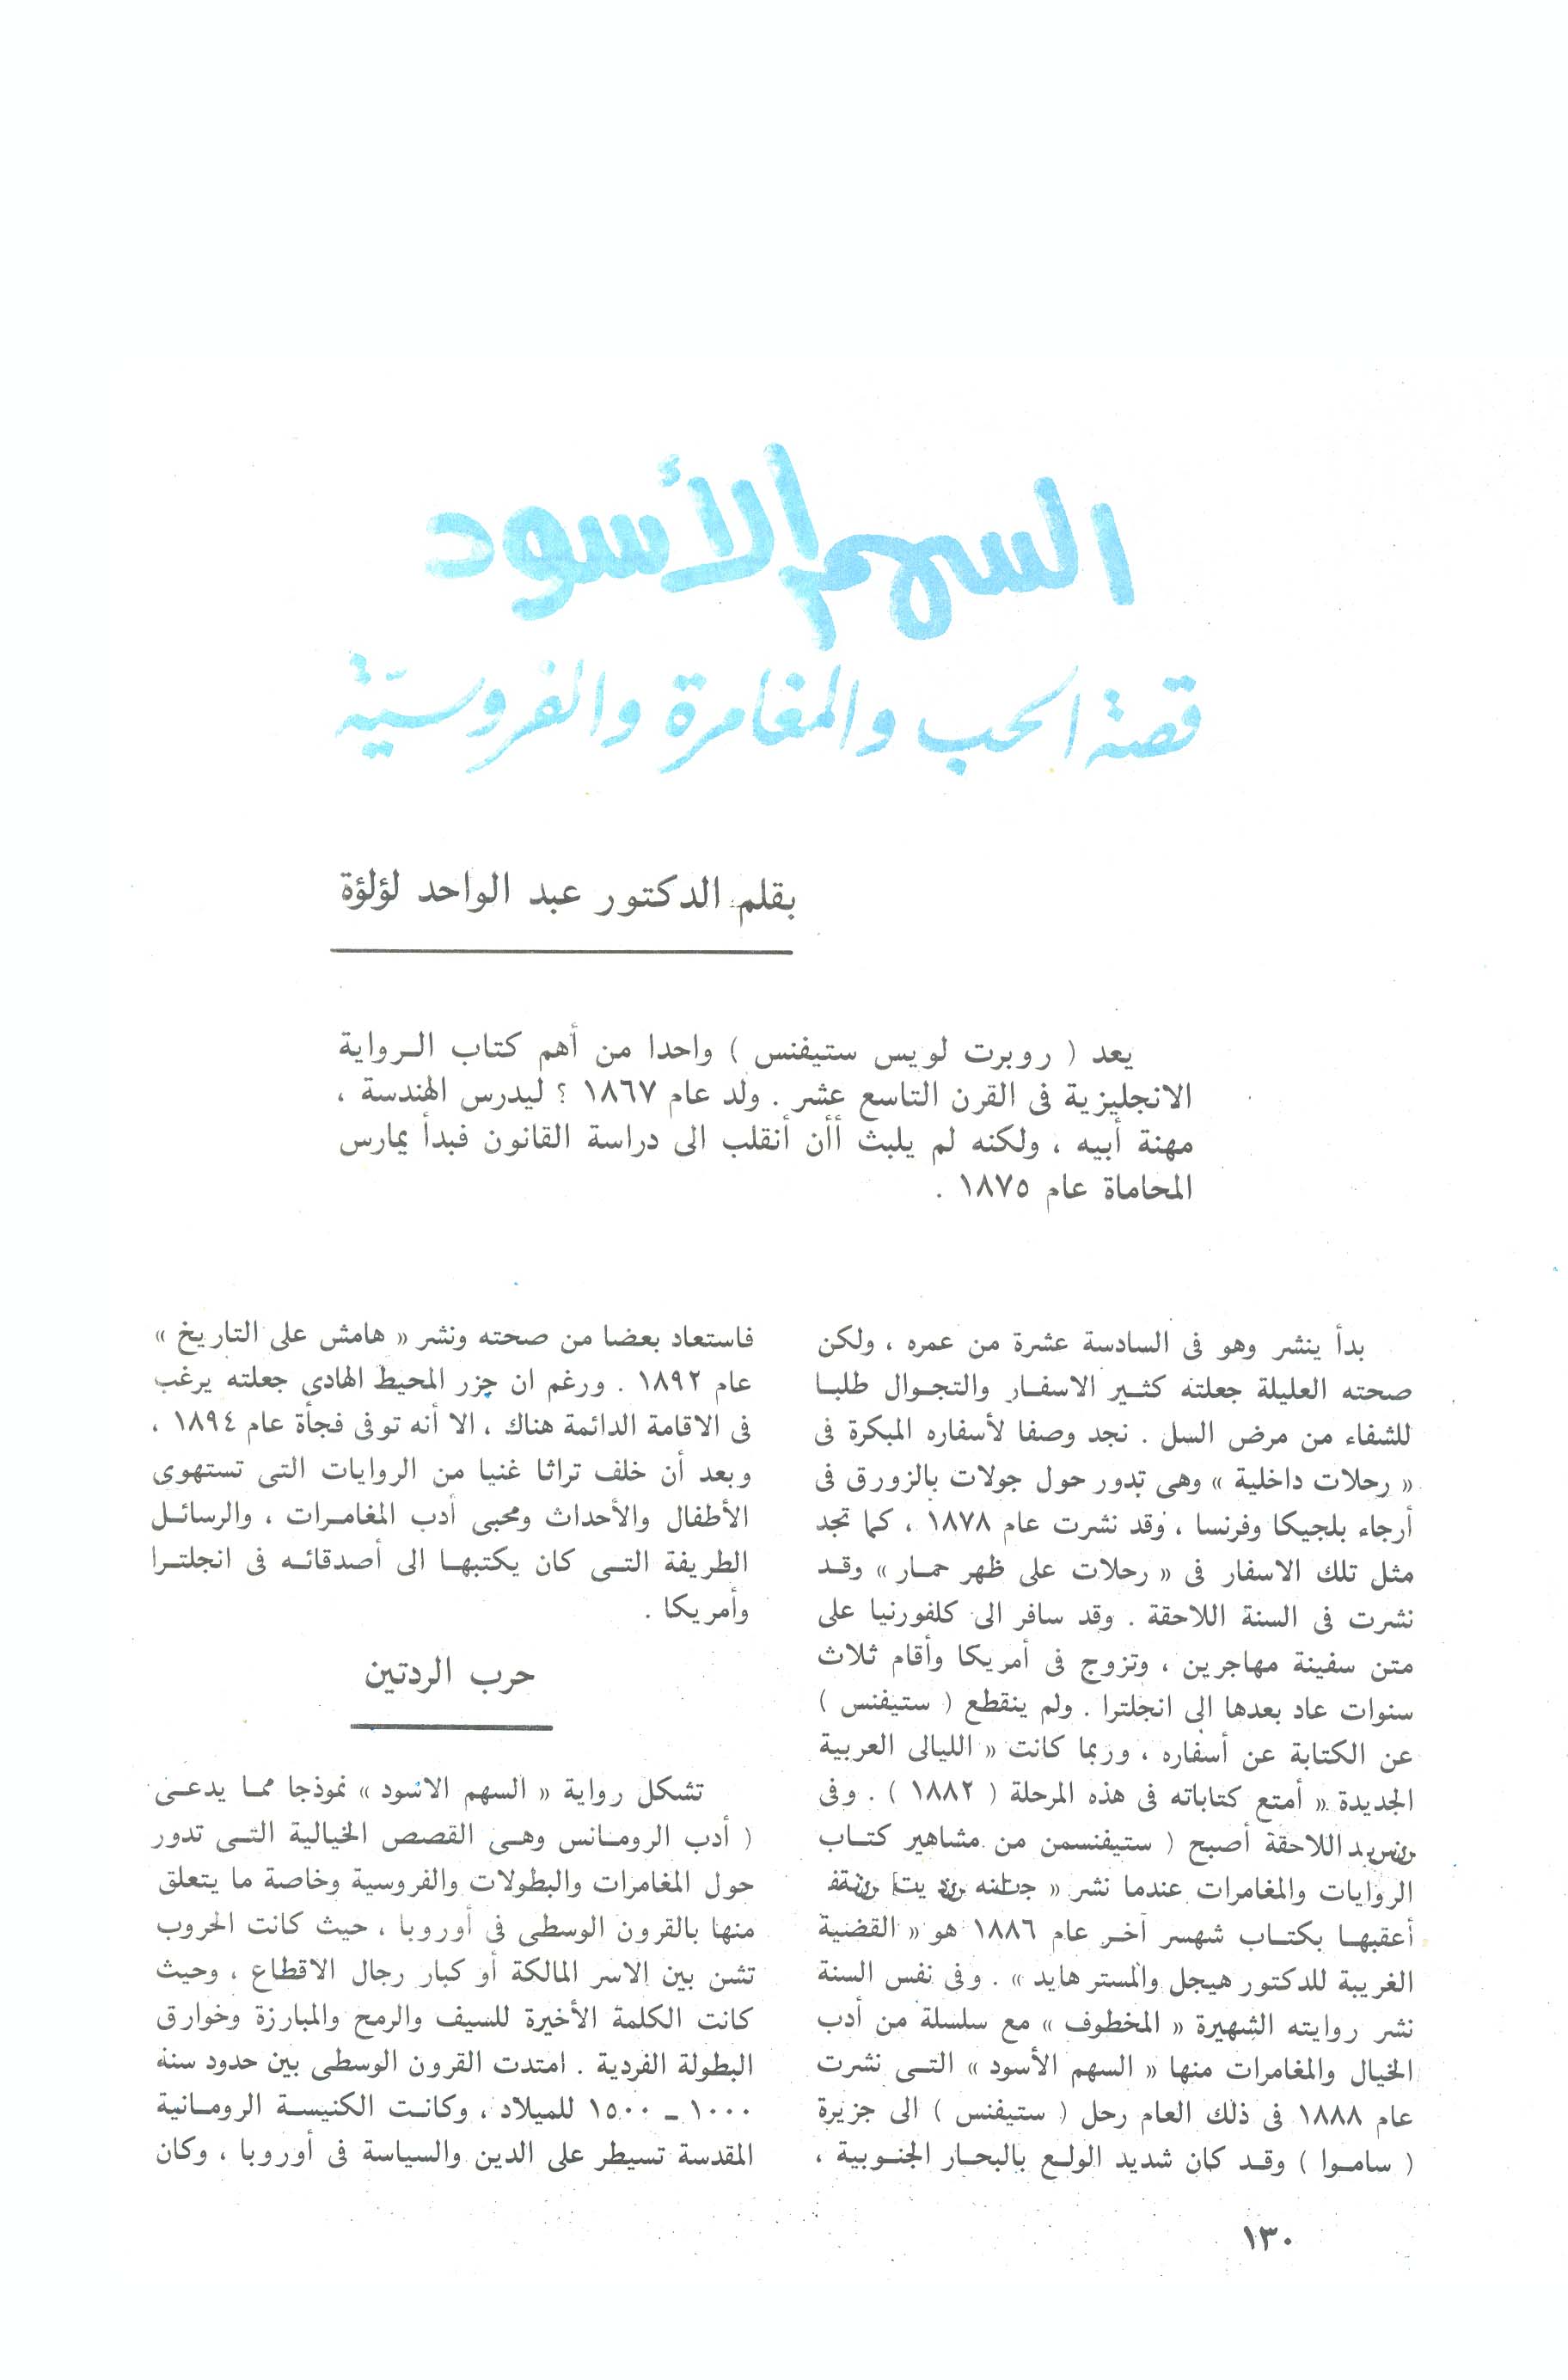 السهم الأسود
قصة الحب والمغامرة والفروسيّة
بقلم الدكتور عبد الواحد لؤلؤة
يعد ( روبرت لويس ستيفنس ) واحدا من أهم كتاب الـرواية
الانجليزية فى القرن التاسع عشر . ولد عام ١٨٦٧ ؟ ليدرس الهندسة ،
مهنة أبيه ، ولكنه لم يلبث أأن أنقلب الى دراسة القانون فبدأ يمارس
المحاماة عام ١٨٧٥ .
بدأ ينشر وهو فى السادسة عشرة من عمره ، ولكن
صحته العليلة جعلته كثـير الاسفـار والتجـوال طلبـا
للشفاء من مرض السل . نجد وصفا لأسفاره المبكرة فى
« رحلات داخلية » وهى تدور حول جولات بالزورق فى
أرجاء بلجيكا وفرنسا ، وقد نشرت عام ١٨٧٨ ، كما تجد
مثل تلك الاسفار فى « رحلات على ظهر حمـار » وقـد
نشرت فى السنة اللاحقة . وقد سافر الى كلفورنيا على
متن سفينة مهاجرين ، وتزوج فى أمريكا وأقام ثلاث
سنوات عاد بعدها الى انجلترا . ولم ينقطع ( ستيفنس )
عن الكتابة عن أسفاره ، وربما كانت « الليالى العربية
الجديدة « أمتع كتاباته فى هذه المرحلة ( ١٨٨٢ ) . وفى
اللاحقة أصبح ( ستيفنسمن من مشاهير كتـاب
الروايات والمغامرات عندما نشر «
أعقبهـا بكتـاب شهسر آخـر عام ١٨٨٦ هو « القضية
الغريبة للدكتور هيجل والمستر هايد » . وفى نفس السنة
نشر روايته الشهيرة « المخطوف » مع سلسلة من أدب
الخيال والمغامرات منها « السهم الأسود » التـى نشرت
عام ١٨٨٨ فى ذلك العام رحل ( ستيفنس ) الى جزيرة
( سامـوا ) وقـد كان شديد الولـع بالبحـار الجنـوبية ،
فاستعاد بعضا من صحته ونشر « هامش على التاريخ »
عام ١٨٩٢ . ورغم ان جزر المحيط الهادى جعلته يرغب
فى الاقامة الدائمة هناك ، الا أنه توفى فجأة عام ١٨٩٤ ،
وبعد أن خلف تراثا غنيا من الروايات التى تستهوى
الأطفال والأحداث ومحبى أدب المغامـرات ، والرسائـل
الطريفة التـى كان يكتبهـا الى أصدقائـه فى انجلتـرا
وأمريكا .
حرب الردتين
تشكل رواية « السهم الاسود » نموذجا ممـا يدعـى
( أدب الرومـانس وهـى القصص الخيالية التـى تدور
حول المغامرات والبطولات والفروسية وخاصة ما يتعلق
منها بالقرون الوسطى فى أوروبا ، حيث كانت الحروب
تشن بين الاسر المالكة أو كبار رجال الاقطاع ، وحيث
كانت الكلمة الأخيرة للسيف والرمح والمبارزة وخوارق
البطولة الفردية . امتدت القرون الوسطى بين حدود سنة
١٠٠٠ ـ ١٥٠٠ للميلاد ، وكانـت الكنيسـة الرومـانية
المقدسة تسيطر على الدين والسياسة فى أوروبا ، وكان
١٣٠